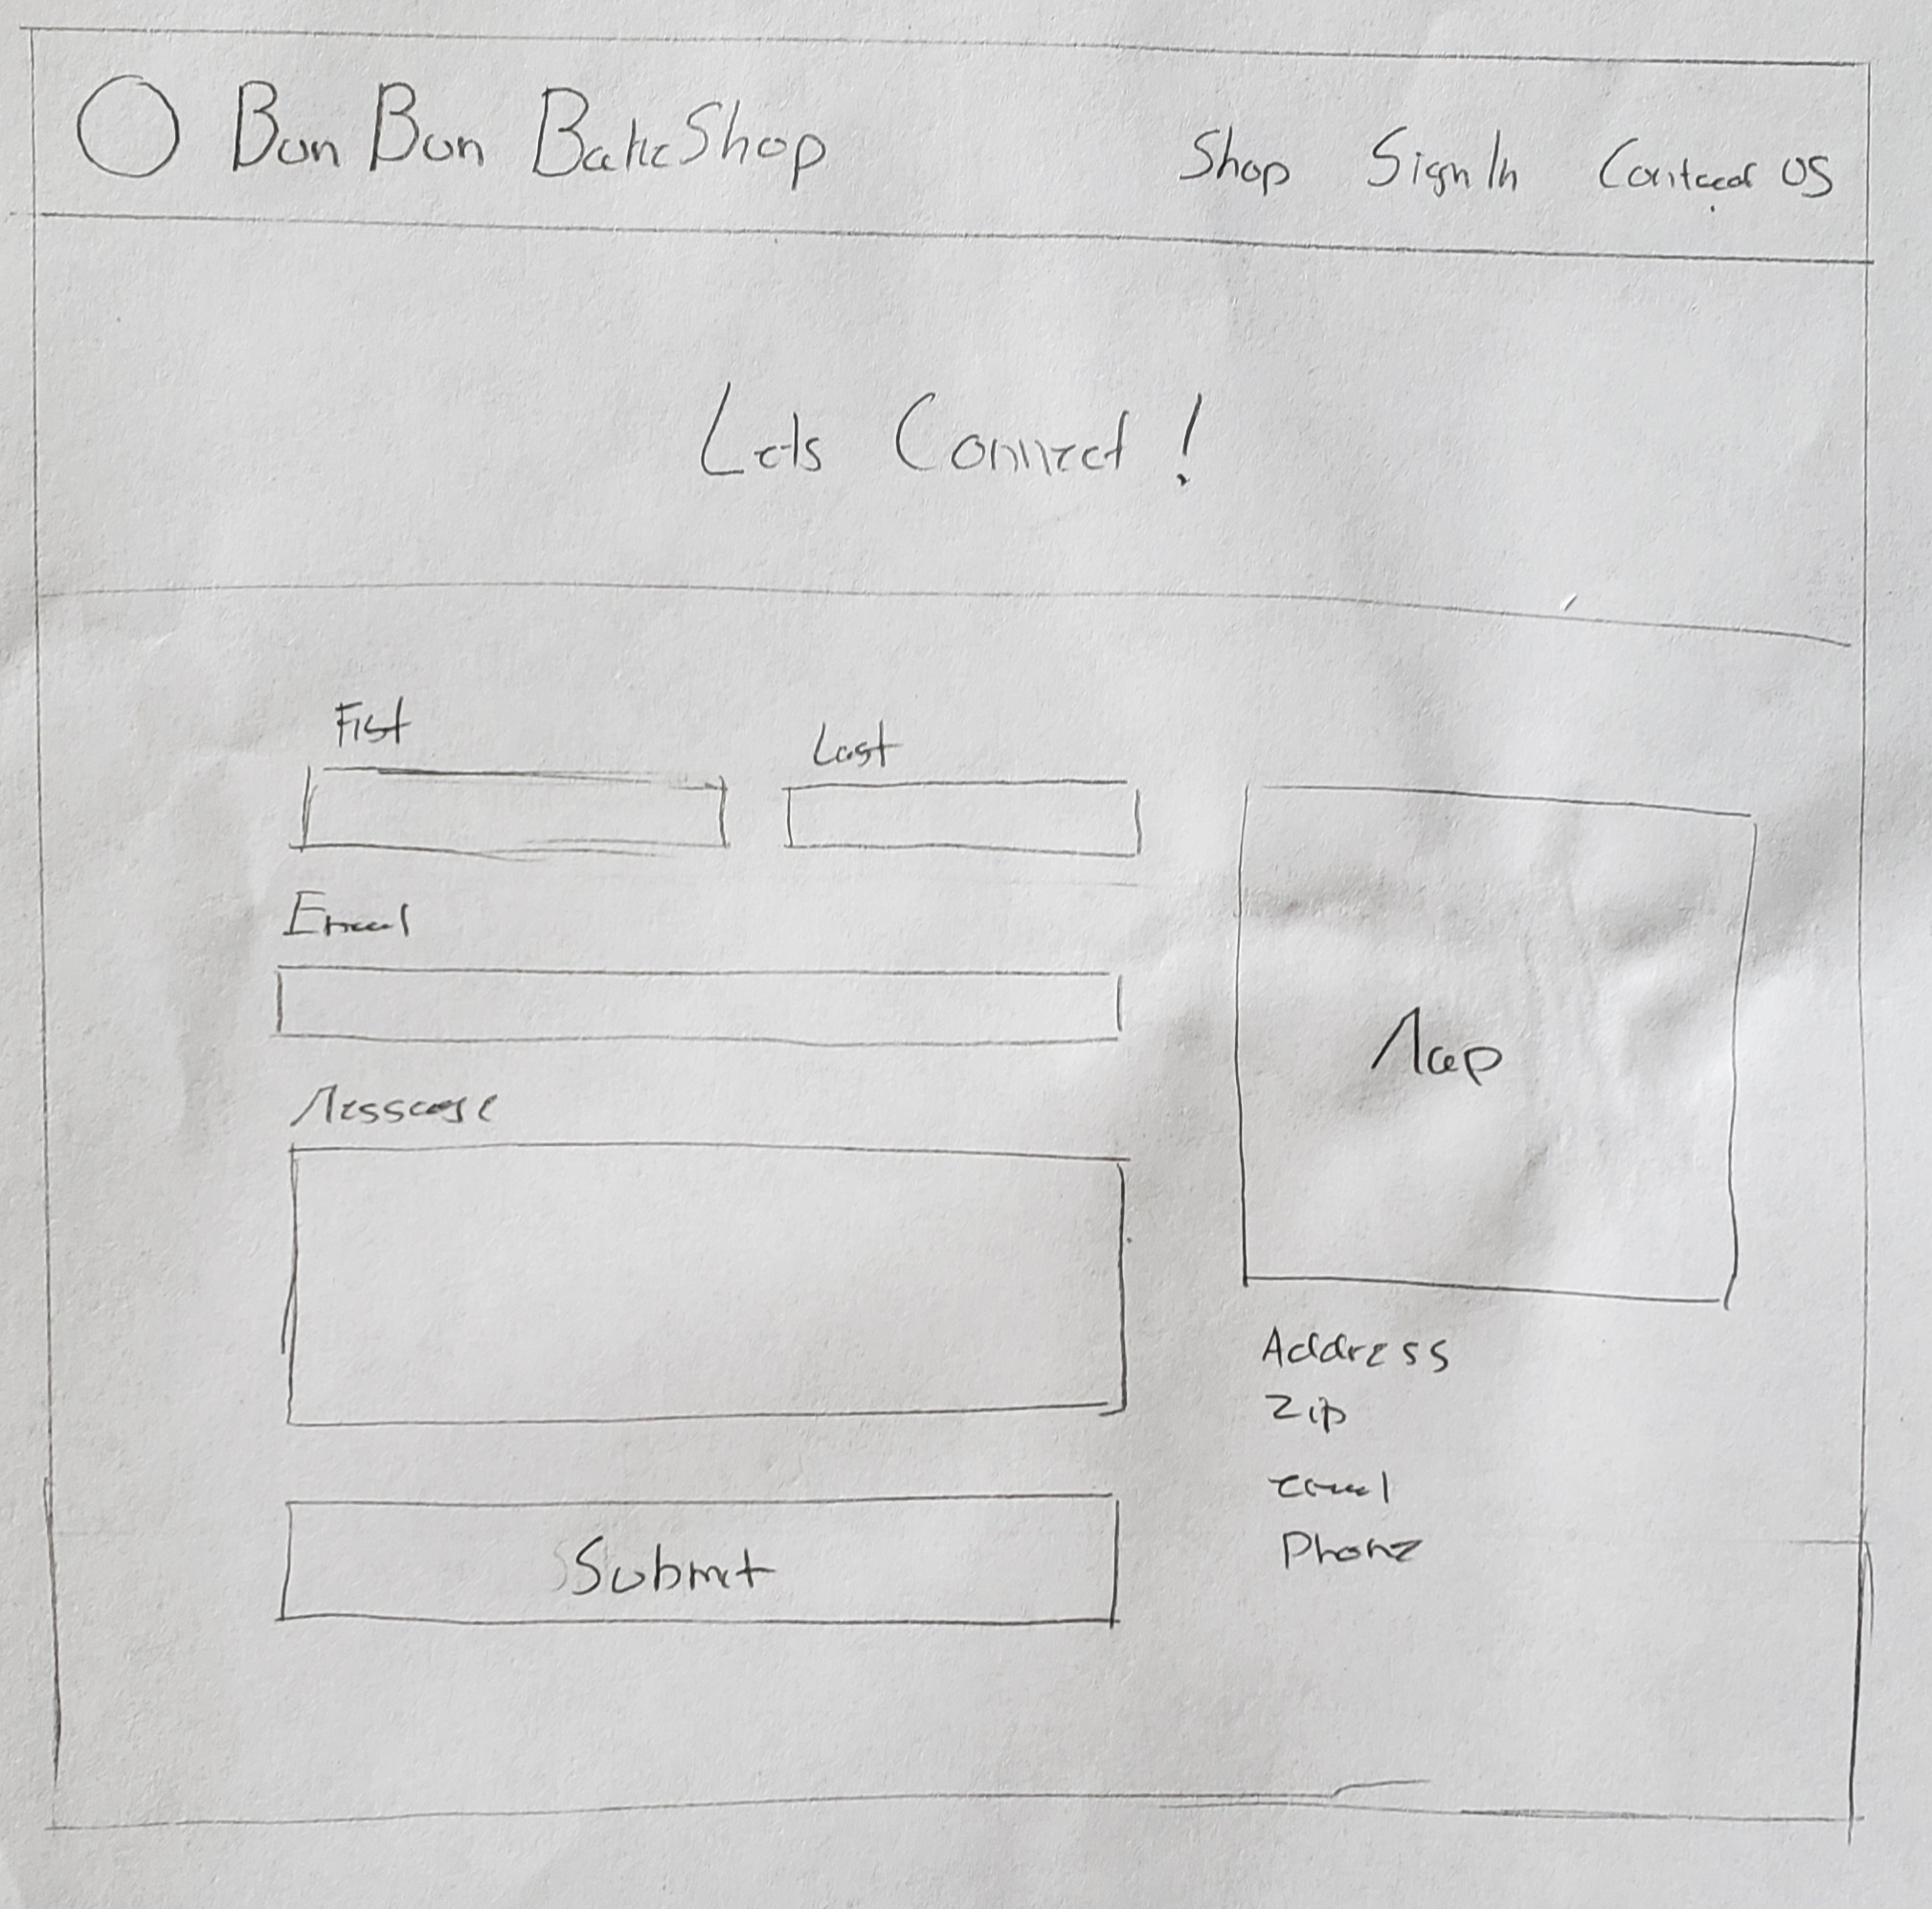 Bon Bon BakeShop Shop Sign In Contact US
Lets Connect !
First Last
Email
Message
Map
Address
Zip
email
Phone
Submit